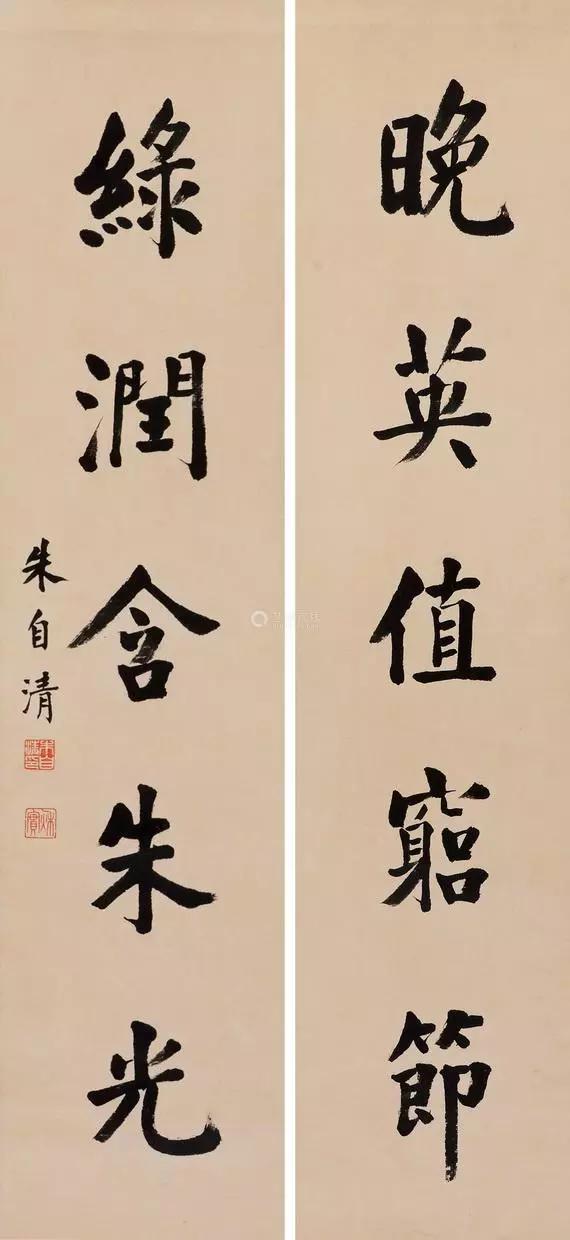 晚英值窮節
綠潤含朱光
朱自清